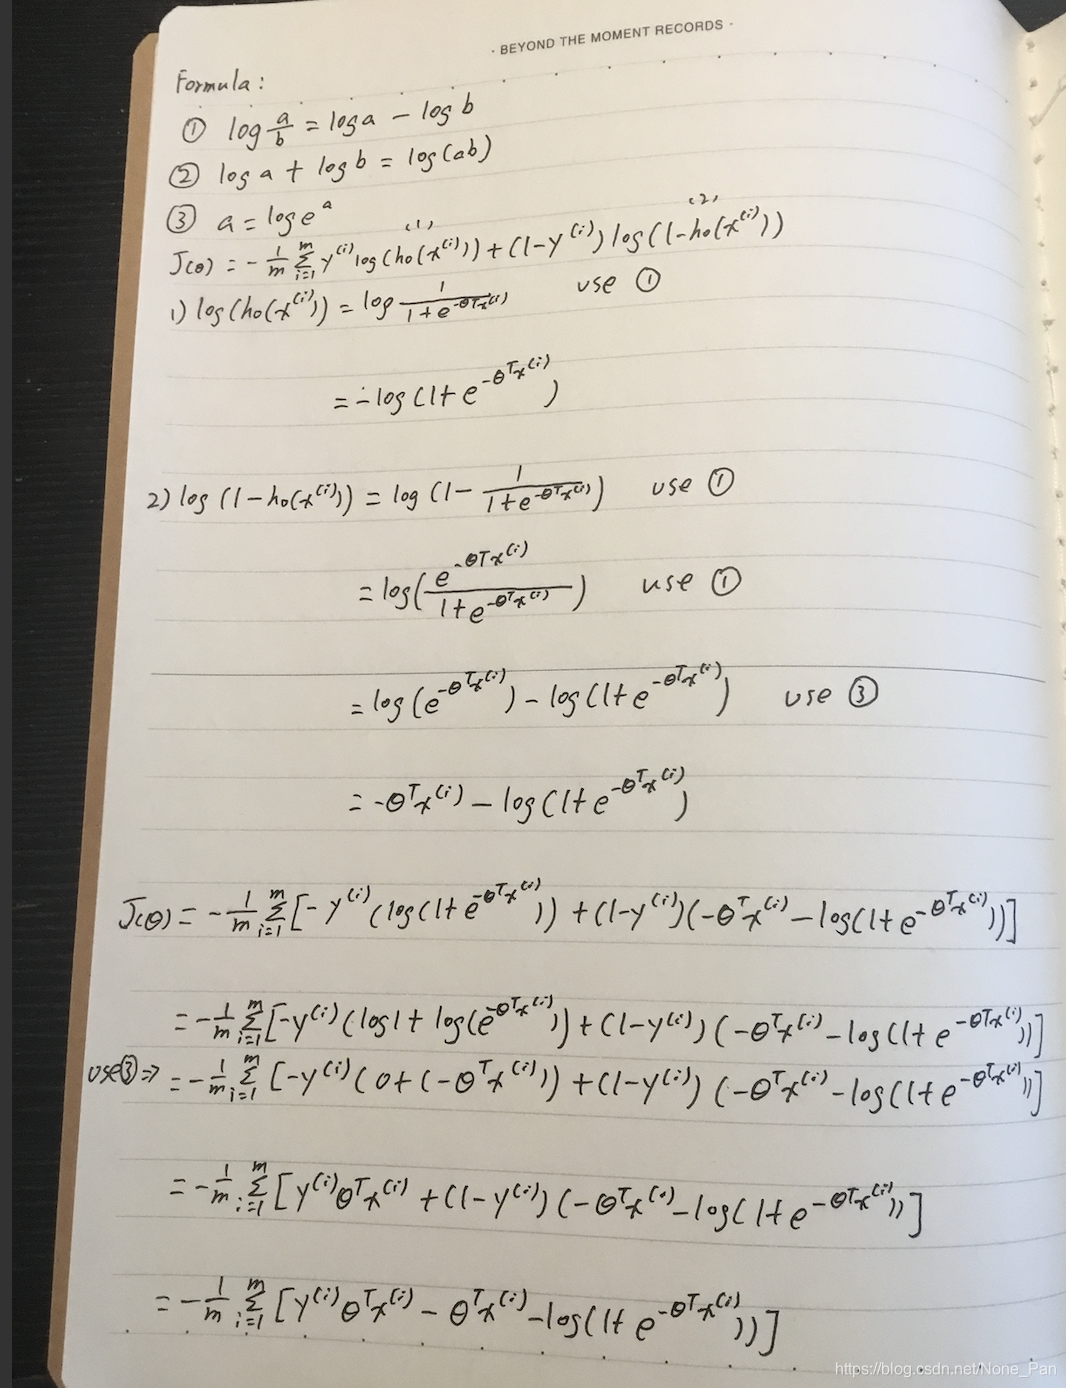 · BEYOND THE MOMENT RECORDS ·
Formula:
① log a/b = log a − log b
② log a + log b = log(ab)
③ a = log e^a
(1) (2)
J(θ) = −1/m Σ_{i=1}^m y^(i) log(hθ(x^(i))) + (1−y^(i)) log(1−hθ(x^(i)))
1) log(hθ(x^(i))) = log 1/(1+e^(−θ^T x^(i))) use ①
= −log(1+e^(−θ^T x^(i)))
2) log(1−hθ(x^(i))) = log(1− 1/(1+e^(−θ^T x^(i)))) use ①
= log(e^(−θ^T x^(i))/(1+e^(−θ^T x^(i)))) use ①
= log(e^(−θ^T x^(i))) − log(1+e^(−θ^T x^(i))) use ③
= −θ^T x^(i) − log(1+e^(−θ^T x^(i)))
J(θ) = −1/m Σ_{i=1}^m [−y^(i)(log(1+e^(−θ^T x^(i)))) + (1−y^(i))(−θ^T x^(i) − log(1+e^(−θ^T x^(i))))]
= −1/m Σ_{i=1}^m [−y^(i)(log1 + log(e^(−θ^T x^(i)))) + (1−y^(i))(−θ^T x^(i) − log(1+e^(−θ^T x^(i))))]
use③⇒ = −1/m Σ_{i=1}^m [−y^(i)(0+(−θ^T x^(i))) + (1−y^(i))(−θ^T x^(i) − log(1+e^(−θ^T x^(i))))]
= −1/m Σ_{i=1}^m [y^(i)θ^T x^(i) + (1−y^(i))(−θ^T x^(i) − log(1+e^(−θ^T x^(i))))]
= −1/m Σ_{i=1}^m [y^(i)θ^T x^(i) − θ^T x^(i) − log(1+e^(−θ^T x^(i))))]
https://blog.csdn.net/None_Pan